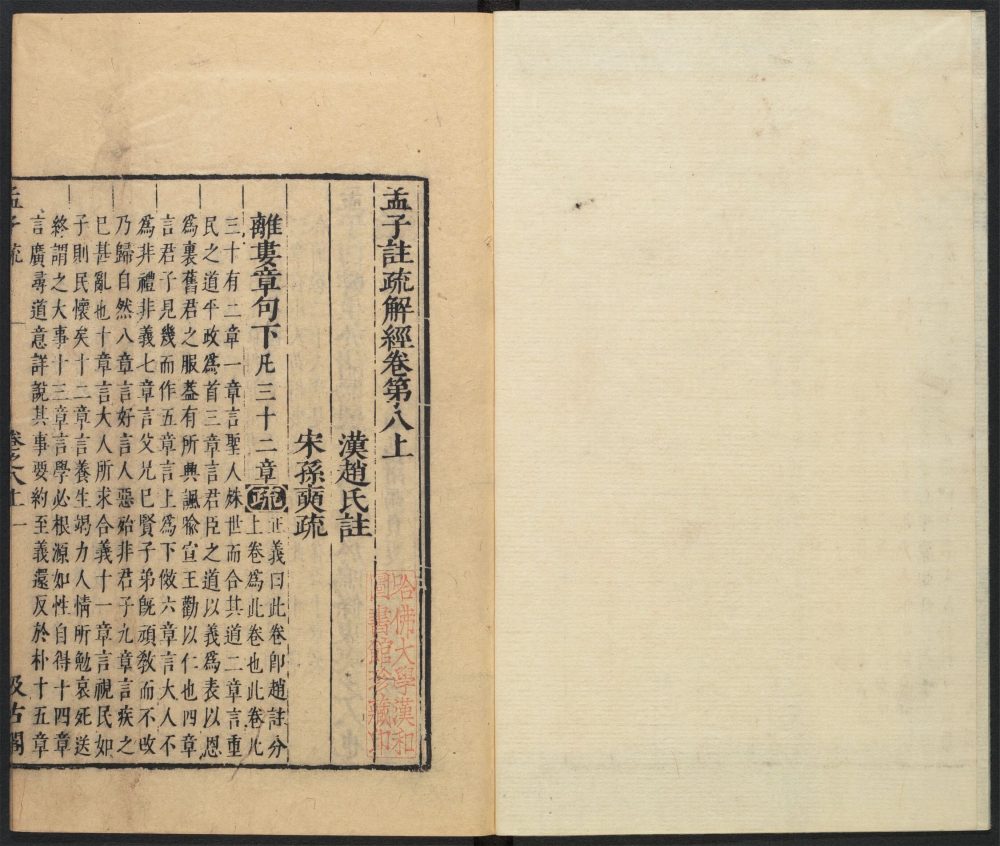 孟子註疏解經卷第八上
漢趙氏註
宋孫奭疏
離婁章句下凡三十二章疏正義曰此卷卽趙註分
上卷爲此卷也此卷凡
三十有二章一章言聖人殊世而合其道二章言重
民之道平政爲首三章言君臣之道以義爲表以恩
爲裏舊君之服葢有所興諷喻宣王勸以仁也四章
言君子見幾而作五章言上爲下傚六章言大人不
爲非禮非義七章言父兄已賢子弟旣頑敎而不改
乃歸自然八章言好言人惡殆非君子九章言疾之
已甚亂也十章言大人所求合義十一章言視民如
子則民懷矣十二章言養生竭力人情所勉哀死送
終謂之大事十三章言學必根源如性自得十四章
言廣尋道意詳說其事要約至義還反於朴十五章
孟子疏 卷之八上 一 汲古閣
哈佛大學漢和
圖書館珍藏印